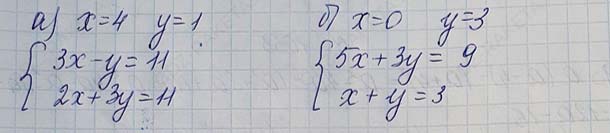 а) x=4 y=1
3x-y=11
2x+3y=11
б) x=0 y=3
5x+3y= 9
x+y=3